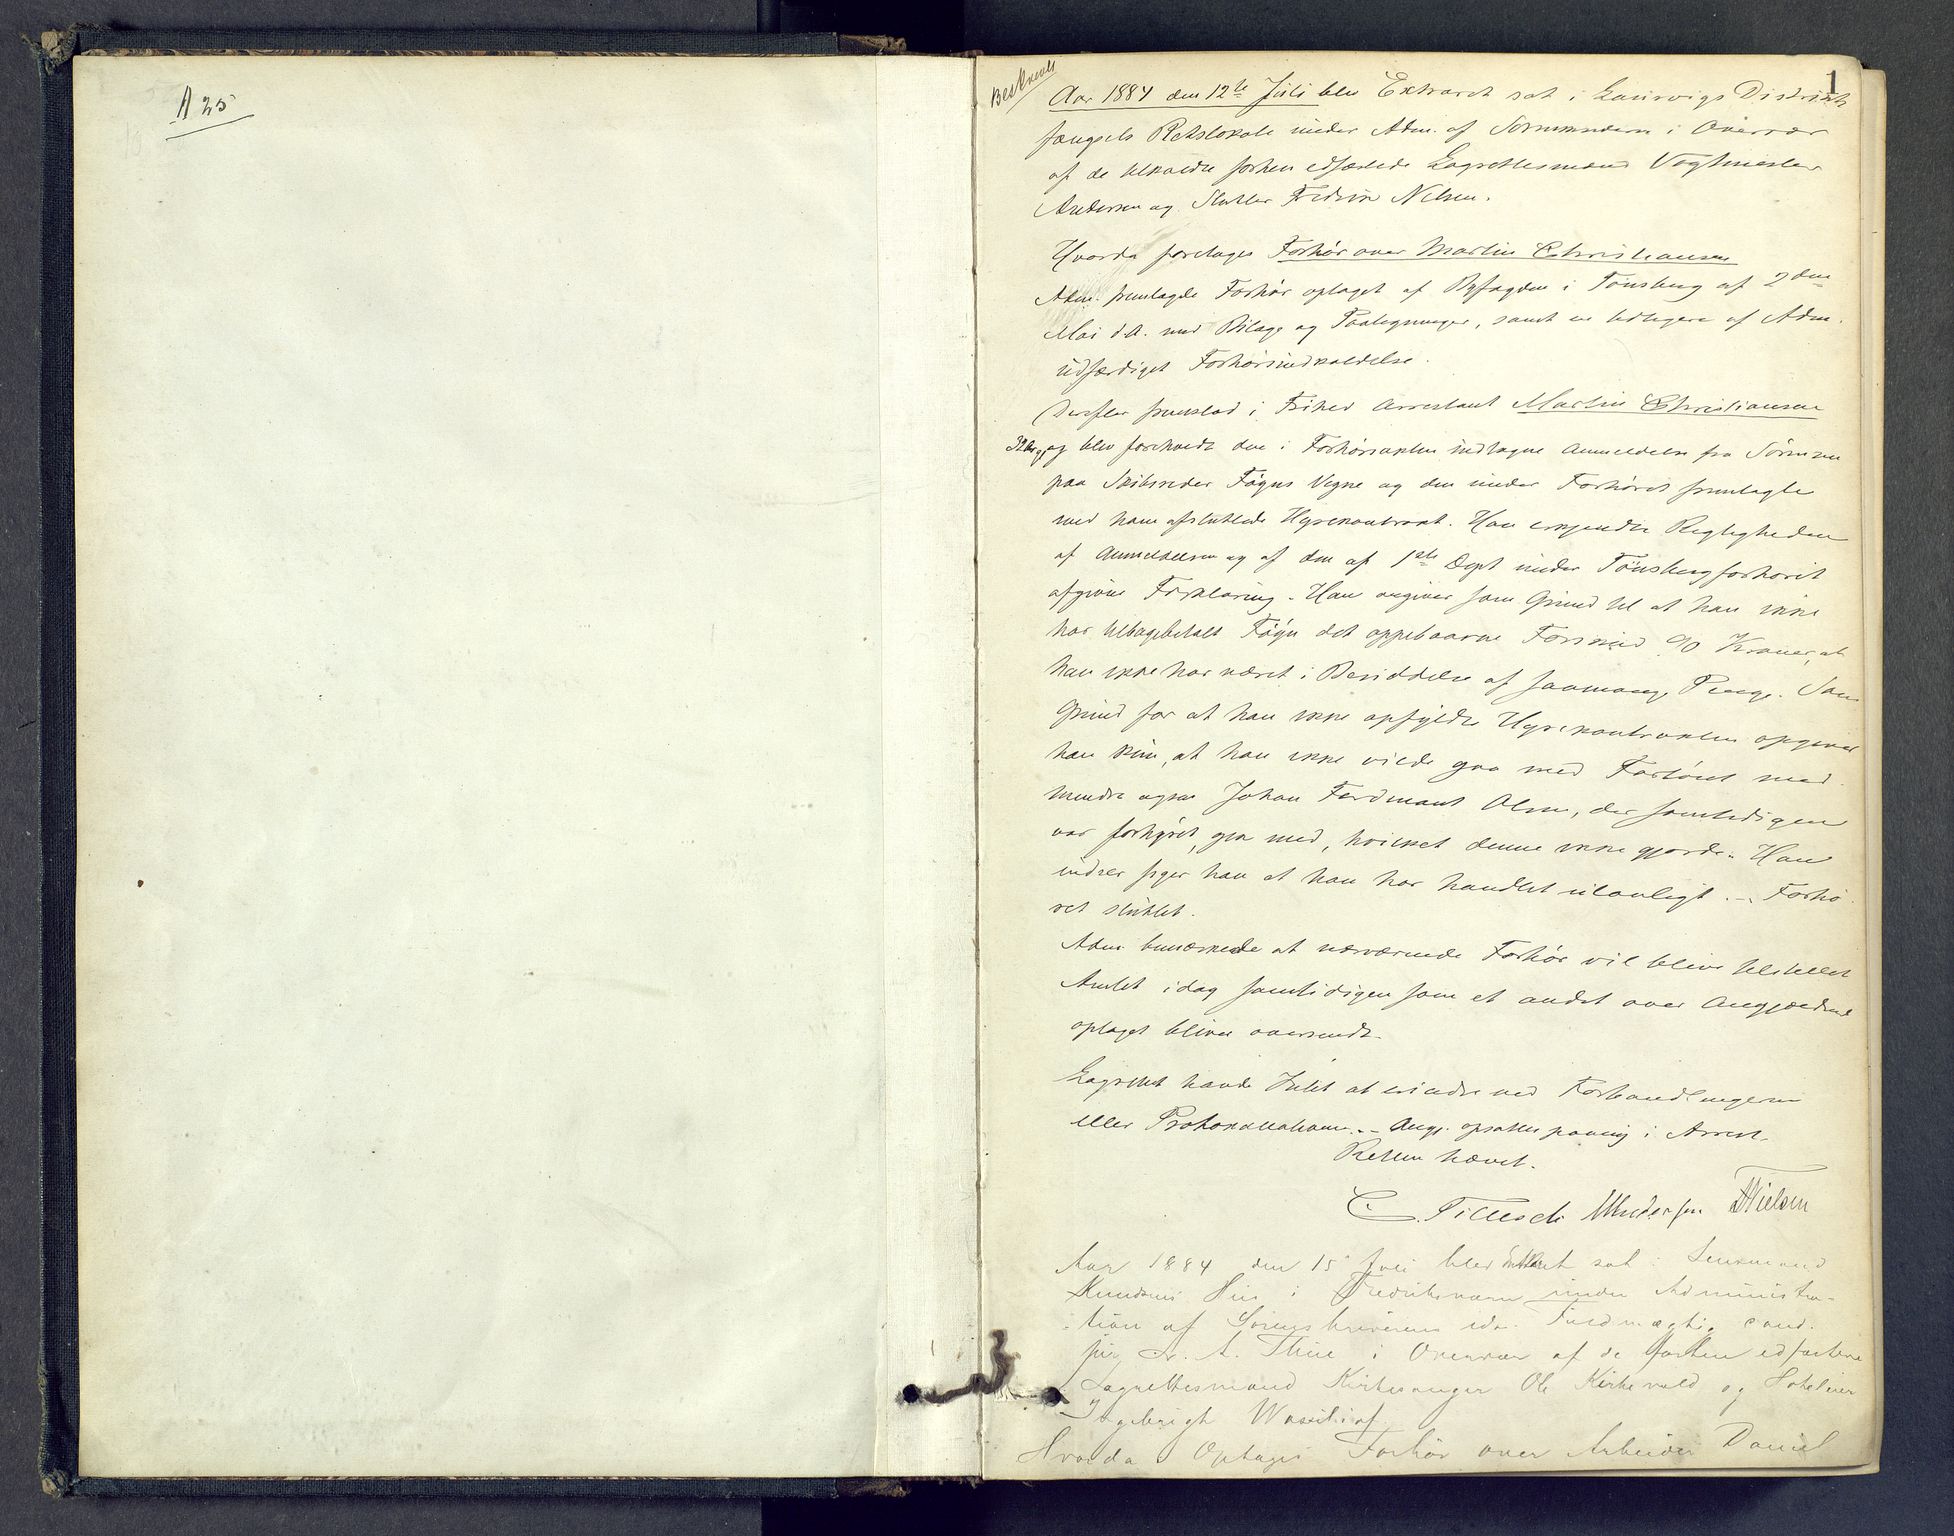 A 25
1
Beskrevet
Aar 1884 den 12te Juli blev Extraret sat i Laurvigs Distrikts
fængsels Retslokale under Adm. af Sorenskriveren i Overvær
af de tilkaldte forhen edfæstede Lagrettesmænd Vagtmester
Andersen og Slutter Fredrik Nilsen.
Hvorda foretages Forhør over Martin Christiansen
Adm. fremlagde Forhør optaget af Byfogden i Tönsberg af 2den
Mai d.A. med Bilage og Paategninger, samt en tidligere af Adm.
udfærdiget Forhørsindkaldelse.
Derefter fremstod i Frihed Arrestant Martin Christiansen
og blev foreholdt den i Forhørsakten indtagne Anmeldelse fra
paa Skibsreder Föyns Vegne og den under Forhöret fremlagte
med ham afsluttede Hyrekontrakt. Han erkjendte Rigtigheden
af Anmeldelsen og af den af 1ste Dept under Tönsbergforhöret
afgivne Forklaring. Han angiver som Grund til at han ikke
har tilbagebetalt Föyn det oppebaarne Forskud 90 Kroner, at
han ikke har været i Besiddelse af saamange Penge. Som
Grund for at han ikke opfyldte Hyrekontrakten opgiver
han kun, at han ikke vilde gaa med Fartöiet med
mindre ogsaa Johan Ferdinant Olsen, der samtidigen
var forhyret, gik med, hvilket denne ikke gjorde. Han
indser siger han at han har handlet ulovligt. – Forhö
ret sluttet.
Adm. bemærkede at nærværende Forhör vil blive tilstillet
Amtet idag samtidigen som et andet over Angjældende
optaget bliver oversendt.
Lagrettet havde Intet at erindre ved Forhandlingerne
eller Protokollationen. – Angj. opsattes paany i Arrest.
Retten hævet.
C. Andersen FNielsen
Aar 1884 den 15 Juli blev Extraret sat i Lensmand
Knudsens Hus i Fredriksværn under Administra-
tion af Sorenskriverens edsv. Fuldmægtig cand.
jur A. Thue i Overvær af de forhen edfæstede
Lagrettesmænd Kirkesanger Ole Kirkevold og Hotelier
Ingebrigt
Hvorda Optages Forhör over Arbeider Daniel